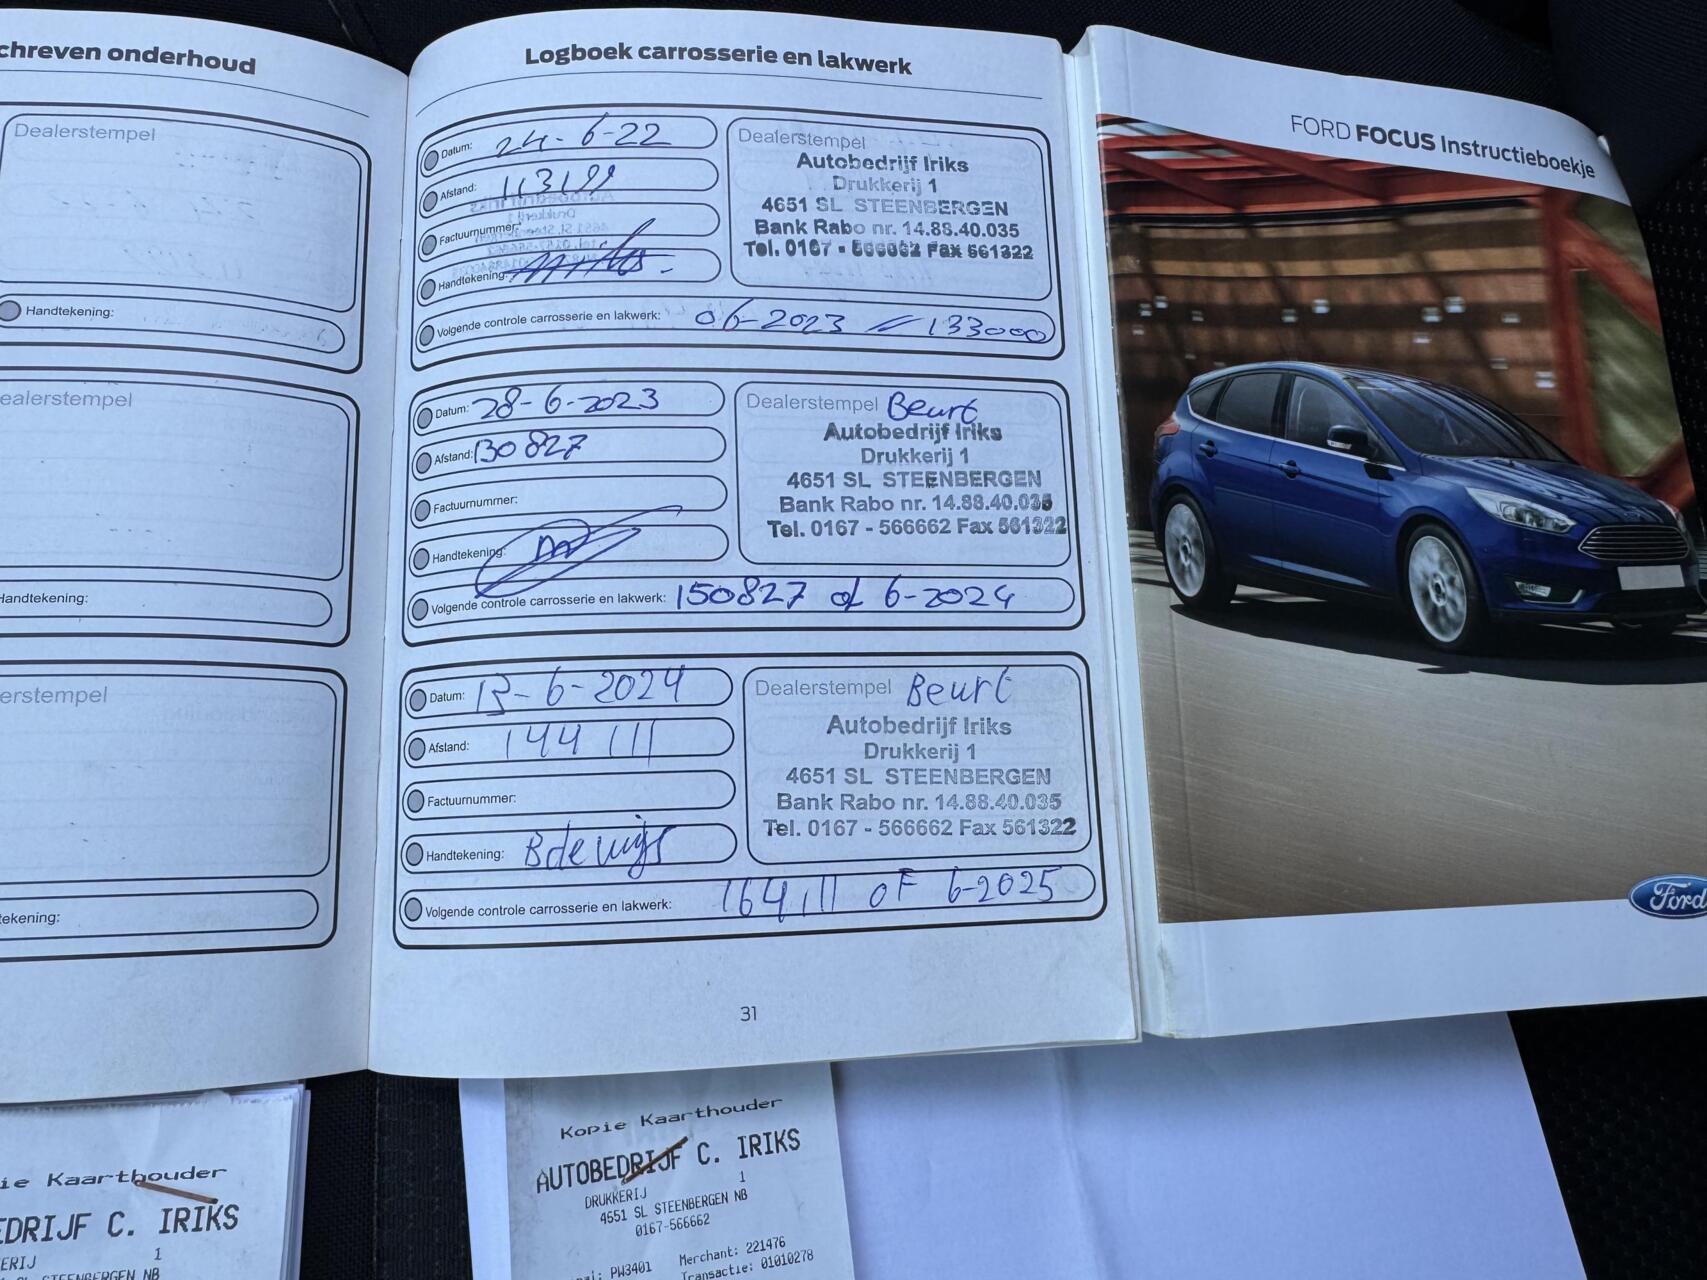 chreven onderhoud
Dealerstempel
Handtekening:
ealerstempel
Handtekening:
erstempel
tekening:
Logboek carrosserie en lakwerk
Datum: 24-6-22
Afstand:
Factuurnummer:
Handtekening:
Dealerstempel
Autobedrijf Iriks
Drukkerij 1
4651 SL STEENBERGEN
Bank Rabo nr. 14.88.40.035
Tel. 0167 - 566662 Fax 561322
Volgende controle carrosserie en lakwerk: 06-2023 = 133000
Datum: 28-6-2023
Afstand: 130827
Factuurnummer:
Handtekening:
Dealerstempel Beurt
Autobedrijf Iriks
Drukkerij 1
4651 SL STEENBERGEN
Bank Rabo nr. 14.88.40.035
Tel. 0167 - 566662 Fax 561322
Volgende controle carrosserie en lakwerk: 150827 of 6-2024
Datum: 13-6-2024
Afstand: 144111
Factuurnummer:
Handtekening:
Dealerstempel Beurt
Autobedrijf Iriks
Drukkerij 1
4651 SL STEENBERGEN
Bank Rabo nr. 14.88.40.035
Tel. 0167 - 566662 Fax 561322
Volgende controle carrosserie en lakwerk: 164,111 of 6-2025
31
FORD FOCUS Instructieboekje
Ford
ie Kaarthouder
EDRIJF C. IRIKS
ERIJ 1
SL STEENBERGEN NB
Kopie Kaarthouder
AUTOBEDRIJF C. IRIKS
DRUKKERIJ 1
4651 SL STEENBERGEN NB
0167-566662
Merchant: 221476
PW3401
Transactie: 01010278